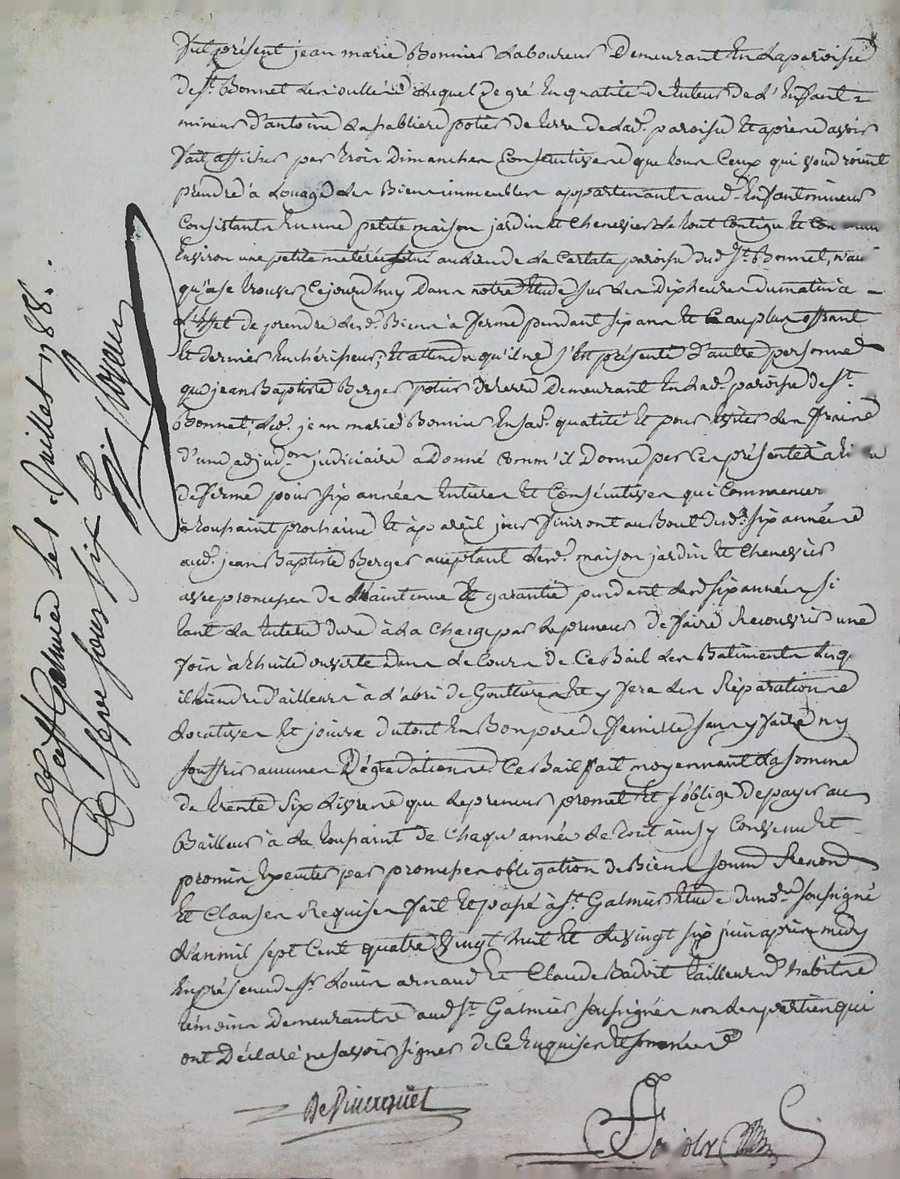 Fut présent jean marie Bonnier Laboureur Demeurant En La paroisse
de St. Bonnet Les oulles Lequel De gré En qualité de tuteur de L'Enfant
mineur d'antoine La sabliere potier de terre de Lad. paroisse Et après avoir
fait afficher par trois Dimanches Consécutives que tous Ceux qui voudroient
prendre à Louage Les Biens immeubles appartenants aud. Enfant mineur
Consistants En une petite maison jardin Et Chenevier Le tout Contigu Et
Environ une petite meterée situé au lieu de La Certate paroisse dud St. Bonnet,
qu'à se trouver Cejourd'huy Dans notre Etude sur Les Dix heures du matin à
L'Effet de prendre Lesd. Biens à ferme pendant six ans Et Ce au plus offrant
Et dernier Enchérisseur; Et attendu qu'il ne s'Est présenté d'autre personne
que jean Baptiste Berger potier de terre Demeurant En Lad. paroisse de St.
Bonnet, Led. jean marie Bonnier En sad. qualité Et pour Eviter Les fraix
d'une adjud.on judiciaire a Donné Comm'il Donne par Ces présentes à titre
de ferme pour six années Entieres Et Consécutives qui Commencer
à toussaint prochaine Et à pareil jour finiront au Bout desd. six années
aud. jean Baptiste Berger acceptant Lesd. maison jardin Et Chenevier
avec promesses de Maintenue Et garantie pendant Lesd six années si
tant La tutele dure à La Charge par Le preneur De faire Recouvrir une
fois à thuile ouverte Dans Le Cours de Ce Bail Les Batiments
il tiendra D'ailleurs à L'abri de Gouttieres Et y fera Les Réparations
Locatives Et jouira du tout En Bon pere de famille sans y faire ny
souffrir aucunes Dégradations. Ce Bail fait moyennant La somme
de trente six Livres que Le preneur promet Et s'oblige De payer au
Bailleur à La toussaint de Chaqu'année Le tout ainsy Convenu Et
promis Executer par promesses obligation de Biens soumd Renond
Et Clauses Requises fait Et passé à St. Galmier Etude du nd.re soussigné
L'an mil sept Cent quatre Vingt huit Et Le vingt six juin après midy
En présence de Sr. Louis arnaud Et Claude Badoit tailleur d'habits
témoins Demeurants aud St. Galmier soussignés non Les parties qui
ont Déclaré ne savoir signer de Ce Enquises Et sommées
St. Galmier Le 1er Juillet 1788.
Reçu sous six s.